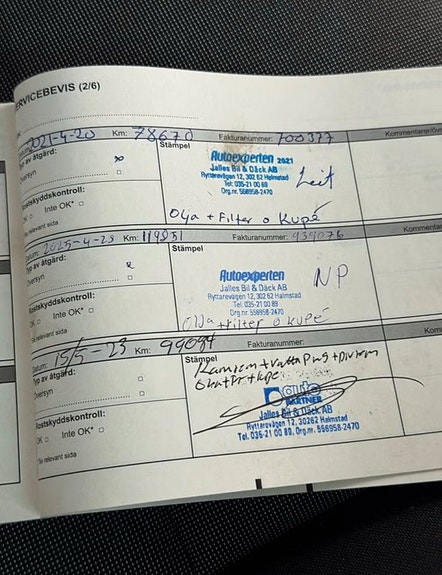 ERVICEBEVIS (2/6)
Datum: 2021-4-20 Km: 78670 Fakturanummer: 700377 Kommentarer/öv
Typ av åtgärd: Stämpel
Översyn
Autoexperten 2021
Jalles Bil & Däck AB
Ryttarevägen 12, 302 62 Halmstad
Tel: 035-21 00 89
Org.nr. 556958-2470
Rostskyddskontroll:
OK Inte OK*
se relevant sida
Olja + Filter o kupé
Datum: 2025-4-23 Km: Fakturanummer: 939076 Kommen
Typ av åtgärd: Stämpel
Översyn
Autoexperten
Jalles Bil & Däck AB
Ryttarevägen 12, 302 62 Halmstad
Tel: 035-21 00 89
Org.nr. 556958-2470
NP
Rostskyddskontroll:
OK Inte OK*
Till relevant sida
Olja + filter o kupé
Datum: 15/5-23 Km: Fakturanummer: Komm
Typ av åtgärd: Stämpel
Översyn
auto
PARTNER
Jalles Bil & Däck AB
Ryttarevägen 12, 30262 Halmstad
Tel. 035-21 00 89, Org.nr. 556958-2470
Rostskyddskontroll:
OK Inte OK*
Till relevant sida